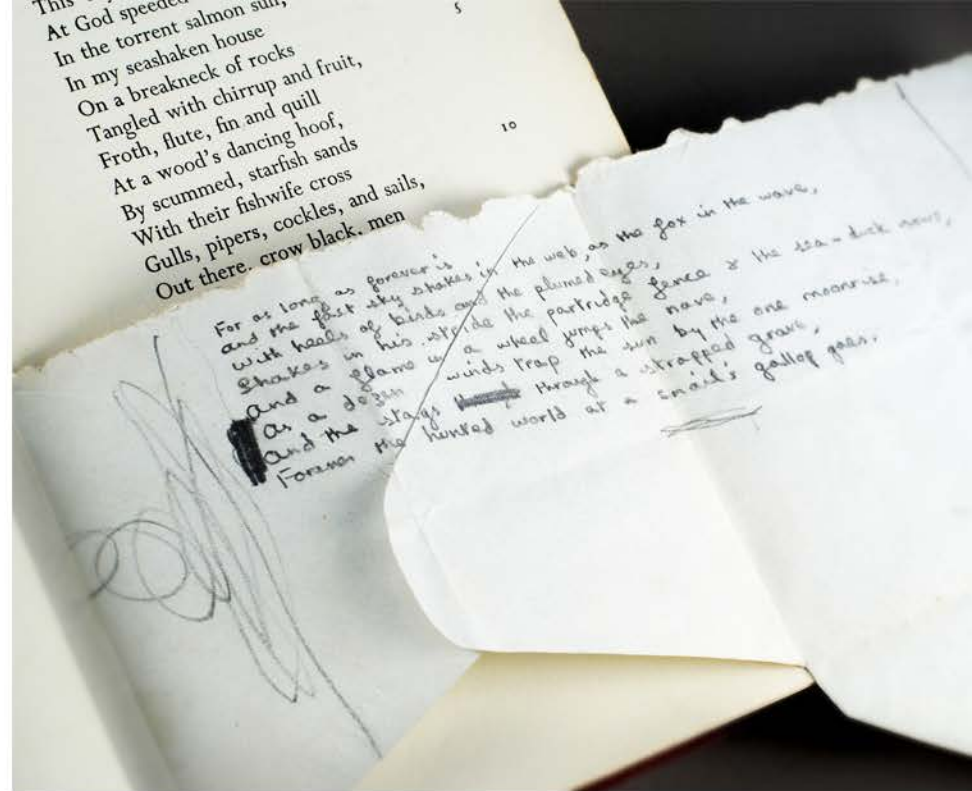 This
At God speeded
In the torrent salmon sun,
In my seashaken house
On a breakneck of rocks 5
Tangled with chirrup and fruit,
Froth, flute, fin and quill
At a wood's dancing hoof,
By scummed, starfish sands
With their fishwife cross 10
Gulls, pipers, cockles, and sails,
Out there, crow black, men
For as long as forever is
and the fast sky shakes in the web, as the fox in the wave,
with heels of birds and the plumed eyes,
Shakes in his stride the partridge fence & the sea-duck rows,
and a flame in a wheel jumps the nave,
as a dozen winds trap the sun by the one moonrise,
and the stags through a strapped grave,
Forever the hunted world at a snail's gallop goes.